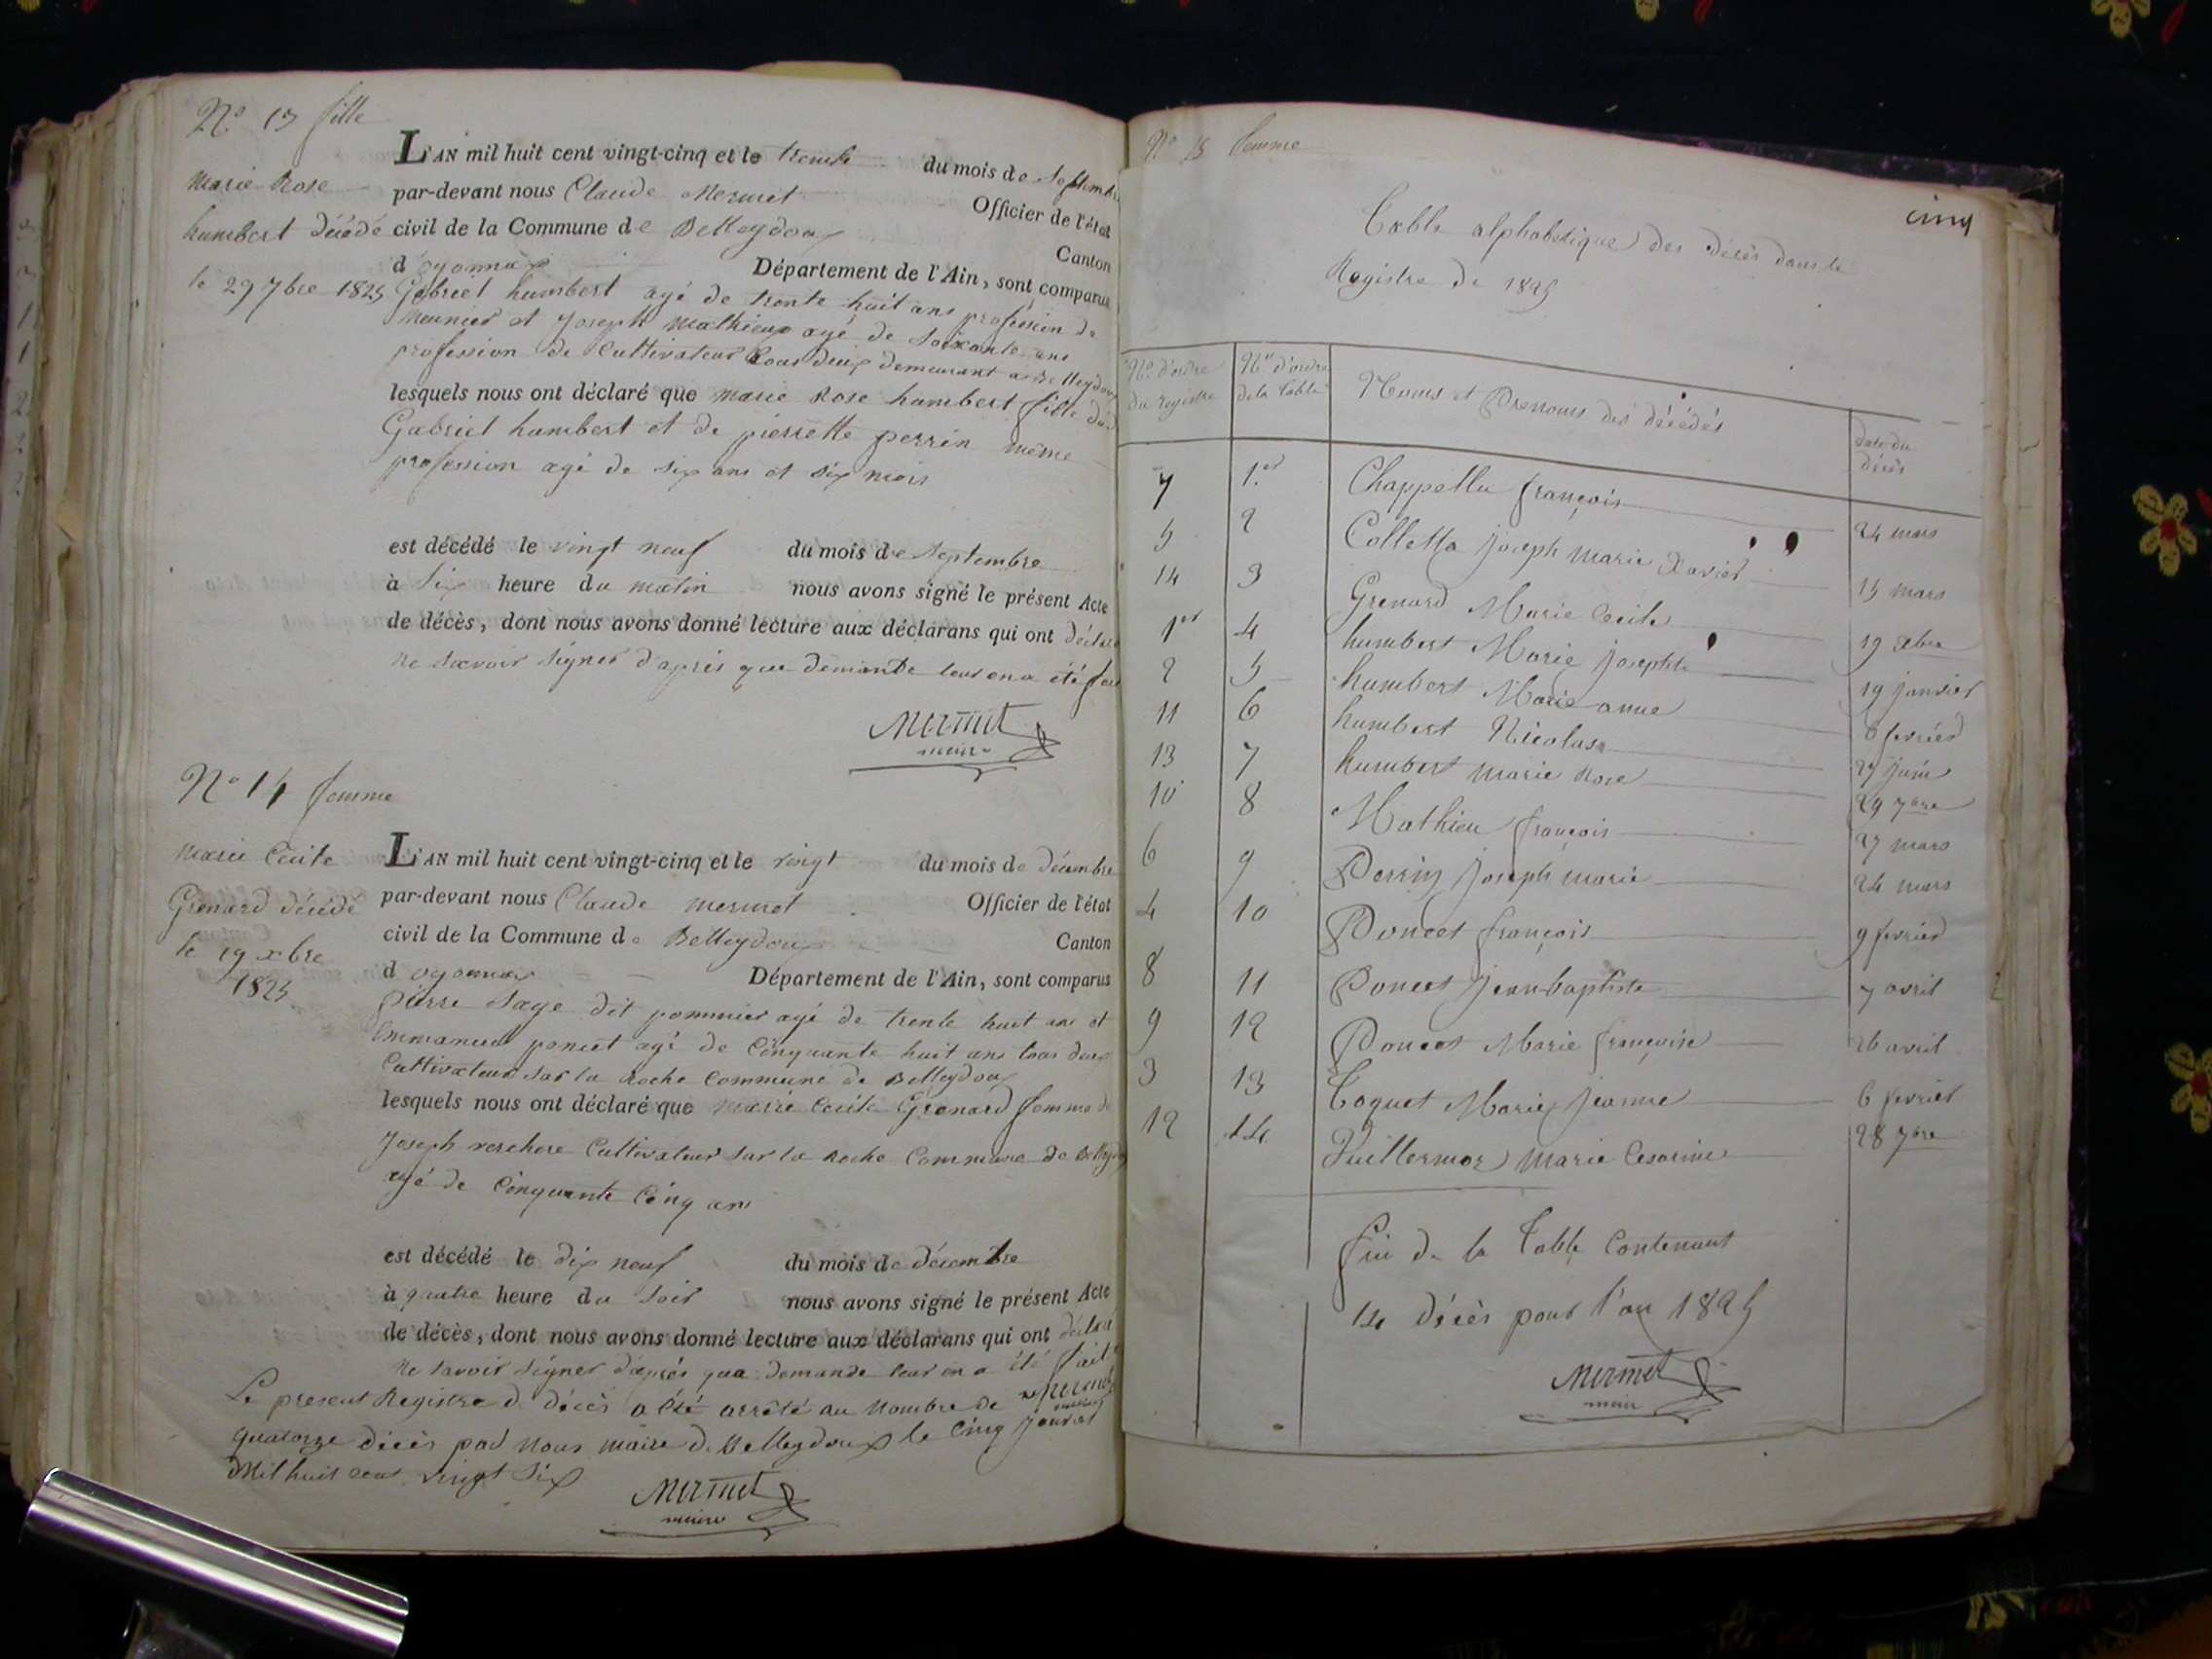 N° 13 fille
Marie Rose
humbert décédé
le 29 7bre 1825
L'AN mil huit cent vingt-cinq et le trente du mois de septembre
par-devant nous Claude Mermet Officier de l'état
civil de la Commune de Belleydoux Canton
d'oyonnax Département de l'Ain, sont comparus
Gabriel humbert agé de trente huit ans profession de
Meunier et Joseph Mathieux agé de soixante ans
profession de Cultivateur tous deux demeurant a Belleydoux
lesquels nous ont déclaré que marie Rose humbert fille du
Gabriel humbert et de pierrette perrin même
profession agé de six ans et six mois
est décédé le vingt neuf du mois de septembre
à six heure du matin nous avons signé le présent Acte
de décès, dont nous avons donné lecture aux déclarans qui ont déclaré
ne savoir signer d'après que demande leur en a été
Mermet
maire
N° 14 femme
Marie Cecile
Grenard décédé
le 19 xbre
1825
L'AN mil huit cent vingt-cinq et le vingt du mois de décembre
par-devant nous Claude mermet Officier de l'état
civil de la Commune de Belleydoux Canton
d oyonnax Département de l'Ain, sont comparus
pierre Sage dit pommier agé de trente huit ans et
Emmanuel poncet agé de Cinquante huit ans tous deux
Cultivateur sur la Roche Commune de Belleydoux
lesquels nous ont déclaré que marie Cecile Grenard femme de
Joseph verchere Cultivateur sur la Roche Commune de Belleydoux
agé de Cinquante Cinq ans
est décédé le dix neuf du mois de décembre
à quatre heure du soir nous avons signé le présent Acte
de décès, dont nous avons donné lecture aux déclarans qui ont déclaré
ne savoir signer d'après qua demande leur en a été fait
Mermet
Le present Registre d. décès a été arrêté au nombre de
quatorze décès par nous maire d. Belleydoux le Cinq
Mil huit cent vingt six
Mermet
maire
N° 15 femme
cinq
Table alphabétique des décès dans le
Registre de 1825
N° d'ordre du registre N° d'ordre de la table Noms et Prenoms des décédés date du décès
7 1er Chappellu françois 24 mars
5 2 Colletta Joseph Marie Xavier 15 mars
14 3 Grenard Marie Cecile 19 xbre
1er 4 humbert Marie Josephte 19 janvier
2 5 humbert Marie anne 6 fevrier
11 6 humbert Nicolas 27 juin
13 7 humbert marie Rose 29 7bre
10 8 Mathieu françois 27 mars
6 9 Perrin Joseph marie 24 mars
4 10 Poncet françois 9 fevrier
8 11 Poncet Jean baptiste 7 avril
9 12 Poncet Marie françoise 26 avril
3 13 Toquet Marie Jeanne 6 fevrier
12 14 Vuillermoz Marie Cesarine 28 7bre
fin de la Table Contenant
14 décès pour l'an 1825
Mermet
maire